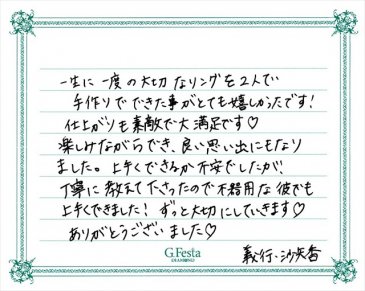 一生に一度の大切なリングを2人で
手作りでできた事がとても嬉しかったです!
仕上がりも素敵で大満足です♡
楽しみながらでき、良い思い出にもなり
ました。上手くできるか不安でしたが、
丁寧に教えて下さったので不器用な彼でも
上手くできました! ずっと大切にしていきます♡
ありがとうございました♡
G.Festa
DIAMOND
義行・沙矢香